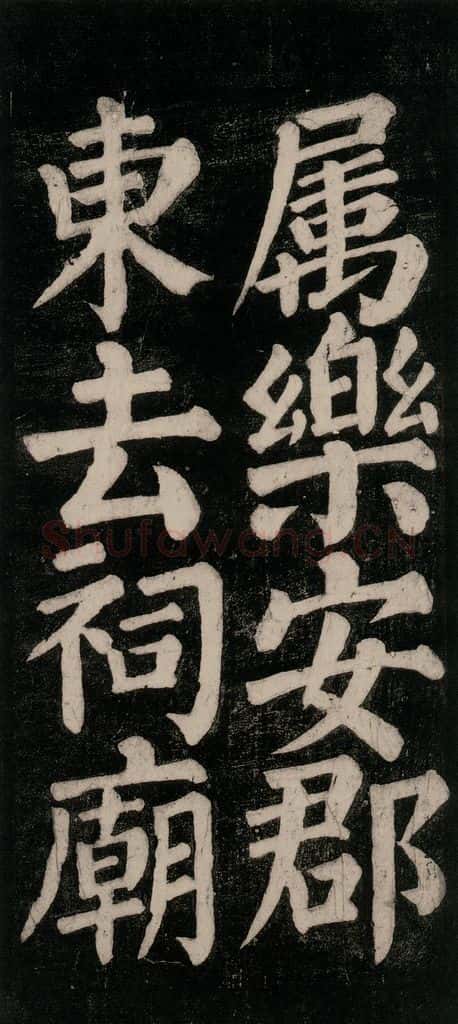 属樂安郡
東去祠廟
Shufawang.CN